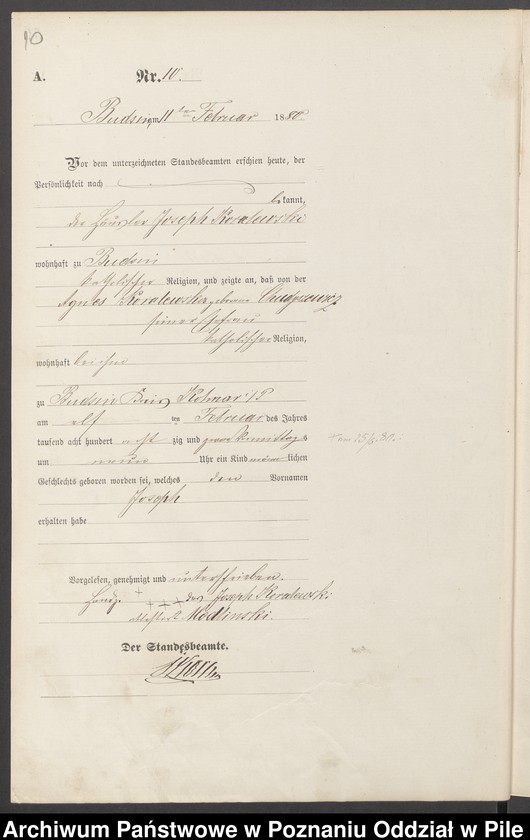 10
A.
Nr. 10.
Budsin, am 11 ten Februar 1880.
Vor dem unterzeichneten Standesbeamten erschien heute, der
Persönlichkeit nach
bekannt,
der Häusler Joseph Koralewski
wohnhaft zu Budsin
katholischer Religion, und zeigte an, daß von der
Agnes Koralewska geborene
seiner Ehefrau
katholischer Religion,
wohnhaft bei ihm
zu Budsin Kreis Kolmar i/P
am elf ten Februar des Jahres
tausend acht hundert acht zig und Vormittags
um neun Uhr ein Kind männlichen
Geschlechts geboren worden sei, welches den Vornamen
Joseph
erhalten habe
Vorgelesen, genehmigt und unterschrieben.
Handz. +++ des Joseph Koralewski
attestirt
Der Standesbeamte.
Archiwum Państwowe w Poznaniu Oddział w Pile